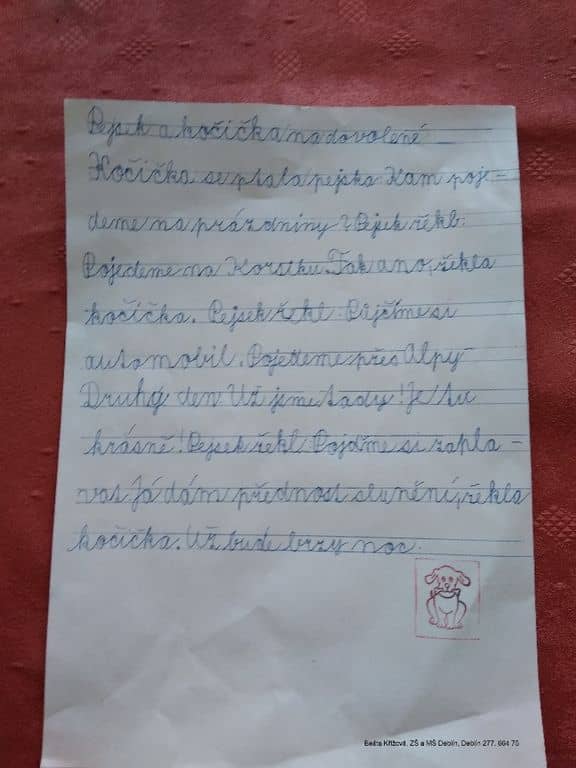 Pejsek a kočička na dovolené
Kočička se ptala pejska Kam poje-
deme na prázdniny? Pejsek řekl:
Pojedeme na Korsiku. Tak ano, řekla
kočička. Pejsek řekl: Půjčíme si
automobil. Pojedeme přes Alpy
Druhý den Už jsme tady! Je tu
krásně! Pejsek řekl Pojďme si zapla-
vat Já dám přednost slunění, řekla
kočička. Už bude brzy noc.
Beáta Křížová, ZŠ a MŠ Deblín, Deblín 277, 664 75